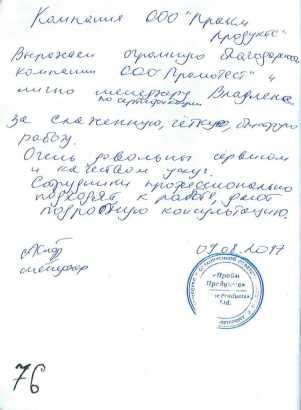 Компания ООО "Прайм
Продуктс"
Выражаем огромную благодарность
компании ООО "Промотест" и
лично менеджеру Владлене
по сертификации
за слаженную, чёткую, быструю
работу.
Очень довольны сервисом
и качеством услуг.
Сотрудники профессионально
подходят к работе, дают
подробную консультацию.
07.08.2017
менеджер
«Прайм
Продуктс»
Products
Ltd.
76